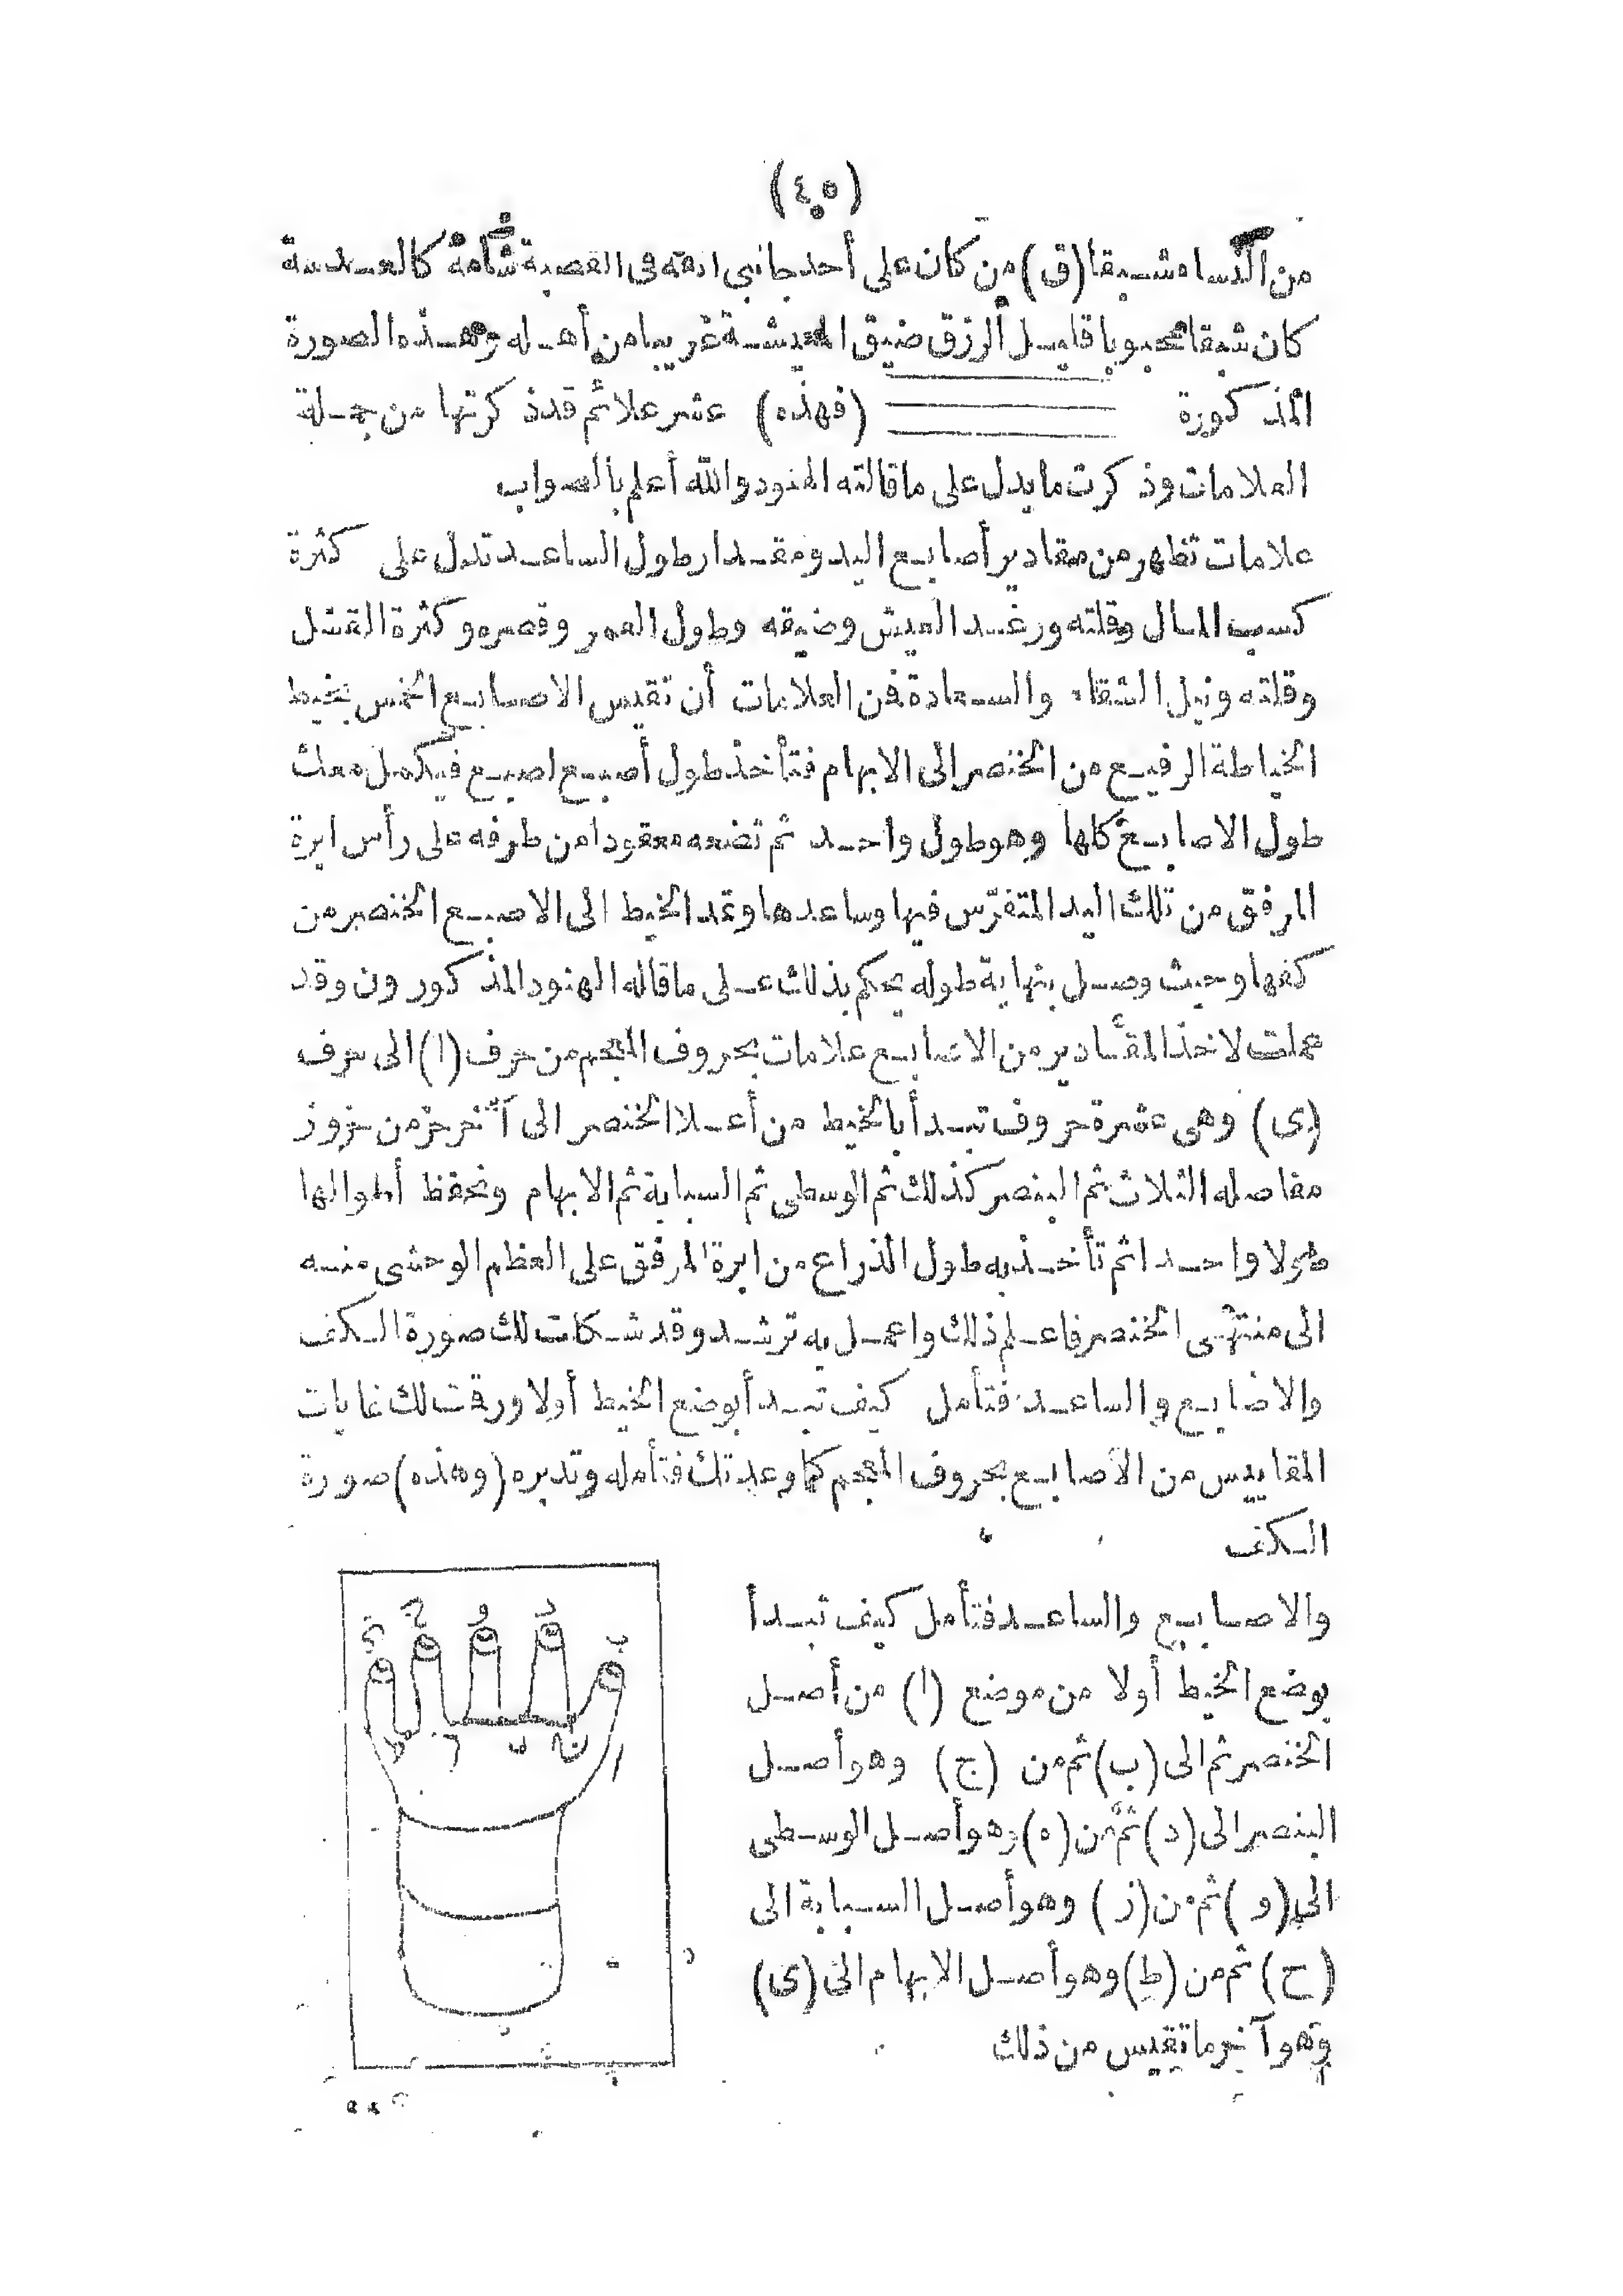 (٤٥)
من النساء شبقا (ق) من كان على أحد جانبي انفه فى القصبة شامة كالعدسة
كان شبقا محبوبا قليل الرزق ضيق المعيشة غريبا من أهله وهذه الصورة
المذكورة (فهذه) عشر علائم قد ذكرتها من جملة
العلامات وذكرت ما يدل على ما قالته الهنود والله أعلم بالصواب
علامات تظهر من مقادير أصابع اليد ومقدار طول الساعد تدل على كثرة
كسب المال وقلته ورغد العيش وضيقه وطول العمر وقصره وكثرة القتل
وقلته ونيل الشقاء والسعادة فن العلامات أن تقيس الاصابع الخمس بخيط
الخياطة الرفيع من الخنصر الى الابهام فتأخذ طول أصبع اصبع فيكمل معك
طول الاصابع كلها وهو طول واحد ثم تضعه معقودا من طرفه على رأس ابرة
المرفق من تلك اليد المتفرّس فيها وساعدها وتمد الخيط الى الاصبع الخنصر من
كفها وحيث وصل بنهاية طوله يحكم بذلك على ما قاله الهنود المذكورون وقد
عملت لاخذ المقادير من الاصابع علامات بحروف المعجم من حرف (ا) الى حرف
(ى) وهى عشرة حروف تبدأ بالخيط من أعلا الخنصر الى آخر حز من حزوز
مفاصله الثلاث ثم البنصر كذلك ثم الوسطى ثم السبابة ثم الابهام وتحفظ أطوالها
طولا واحدا ثم تأخذ به طول الذراع من ابرة المرفق على العظم الوحشى منه
الى منتهى الخنصر فاعلم ذلك واعمل به ترشد وقد شكلت لك صورة الكف
والاصابع والساعد فتأمل كيف تبدأ بوضع الخيط أولا ورقت لك غايات
المقاييس من الاصابع بحروف المعجم كما وعدتك فتأمله وتدبره (وهذه) صورة
الكف
والاصابع والساعد فتأمل كيف تبدأ
بوضع الخيط أولا من موضع (ا) من أصل
الخنصر ثم الى (ب) ثم من (ج) وهو أصل
البنصر الى (د) ثم من (ه) وهو أصل الوسطى
الى (و) ثم من (ز) وهو أصل السبابة الى
(ح) ثم من (ط) وهو أصل الابهام الى (ى)
وهو آخر ما تقيس من ذلك